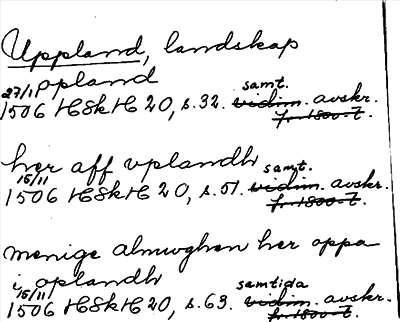 Uppland, landskap
oppland
27/1 samt.
1506 HSkH 20, s.32. vidim. avskr.
fr. 1800-t.
her aff vplandh
15/11 samt.
1506 HSkH 20, s.51. vidim. avskr.
fr. 1800-t.
menige almwghen her oppa
i oplandh
15/11 samtida
1506 HSkH 20, s.63. vidim. avskr.
fr. 1800-t.